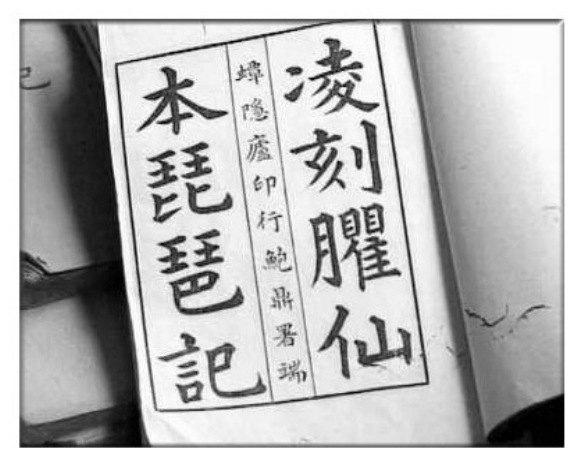 凌刻臞仙
本琵琶記
蟫隱廬印行鮑鼎署端